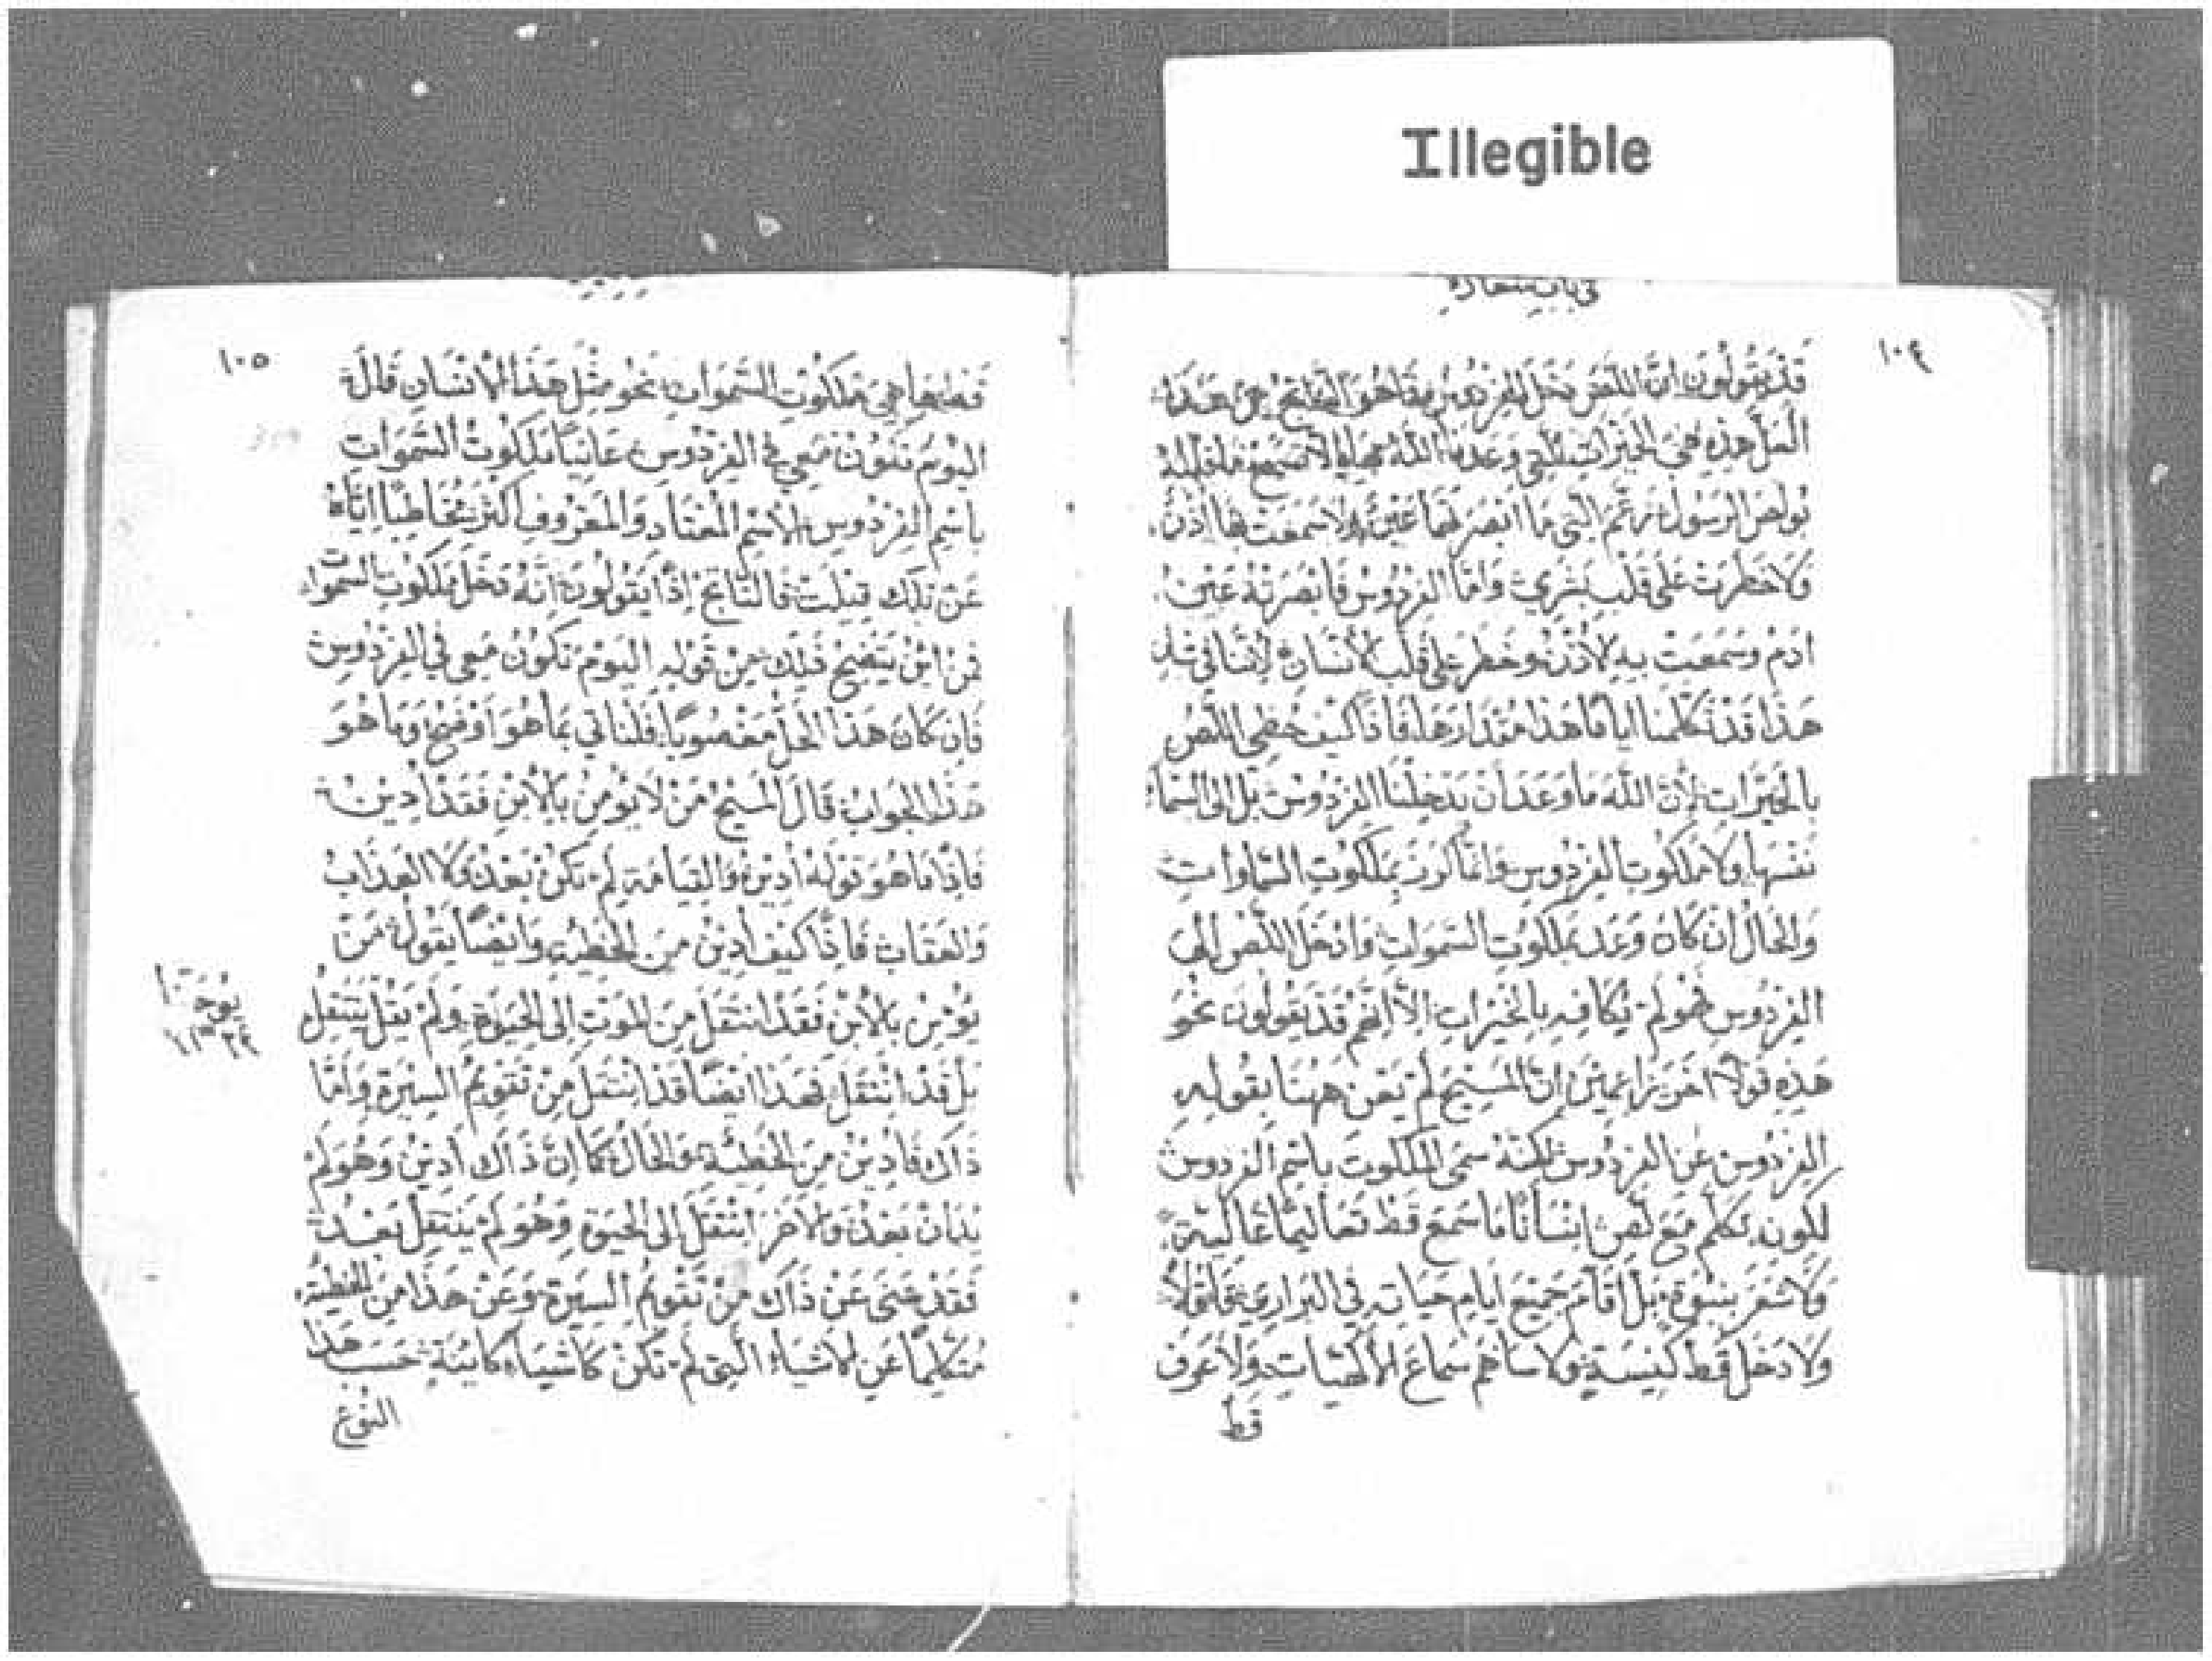 Illegible
في باب
١٠٤
قد يقولون ان اللص دخل الفردوس
العل هذه هي الخيرات التي وعدنا الله
بولص الرسول زعم التي ما ابصرتها عين ولا سمعت بها اذن
ولا خطرت على قلب بشري واما الفردوس فابصرته عين
ادم وسمعت به الاذن وخطر على قلب الانسان لاننا في
هذا قد تكلمنا اياما هذا مقدارها فاذا كيف حظي اللص
بالخيرات لان الله ما وعد ان يدخلنا الفردوس بل الى السما
نفسها ولا ملكوت الفردوس وانما كرز بملكوت السماوات
والحال ان كان وعد بملكوت السموات وادخل اللص الى
الفردوس فهو لم يكافيه بالخيرات الا انهم قد يقولون نحو
هذه قولا اخر زاعمين ان المسيح لم يعن ههنا بقوله
الفردوس عن الفردوس لكنه سمى الملكوت باسم الفردوس
لكونه تكلم مع لص انسانا ما سمع قط تعاليما عالية
ولا شعر بنبوة بل اقام جميع ايام حياته في البراري
ولا دخل قط كنيسة ولا ساهم سماع الالهيات ولا عرف
قط
١٠٥
قط ما هي ملكوت السموات نحو مثل هذا الانسان قال
اليوم تكون معي في الفردوس عانيا ملكوت السموات
باسم الفردوس الاسم المعتاد والمعروف اكثر مخاطبا اياه
عن تلك قيلت فالناتج اذا يقولون انه دخل ملكوت السموات
فمن اين يتضح ذلك من قوله اليوم تكون معي في الفردوس
فان كان هذا الحل مغصوبا فلناتي بما هو اوضح وما هو
هذا الجواب قال المسيح من لا يومن بالابن فقد ادين
فاذا ما هو قوله ادين والقيامة لم تكن بعد ولا العذاب
والعقاب فاذا كيف ادين من الخطية وايضا يقول من
يومن بالابن فقد انتقل من الموت الى الحيوة ولم يقل ينتقل
يوحنا
بل قد انتقل فهذا ايضا قد انتقل من تقويم السيرة واما
ذاك فادين من الخطية والحال كما ان ذاك ادين وهو لم
يدان بعد والاخر انتقل الى الحيوة وهو لم ينتقل بعد
فقد عنى عن ذاك من تقويم السيرة وعن هذا من الخطية
متكلما عن الاشياء التي لم تكن كاشياء كاينة حسب هذا
النوع